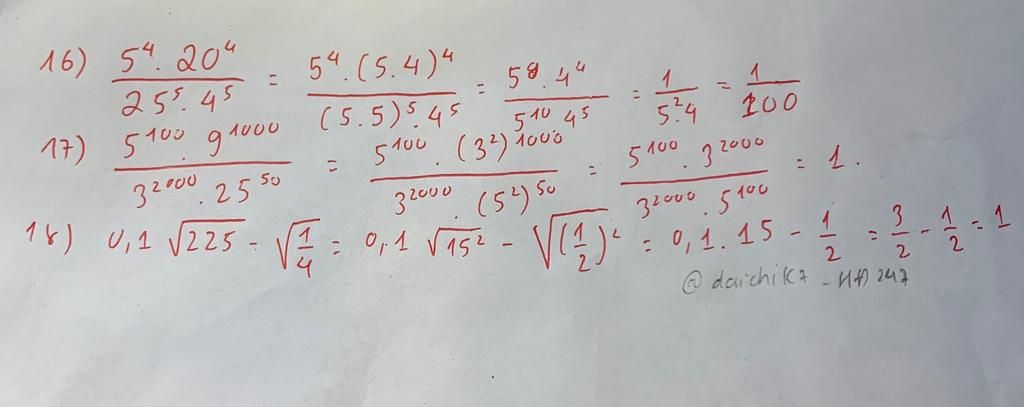 16) 5⁴ . 20⁴ / 25⁵ . 4⁵ = 5⁴ . (5 . 4)⁴ / (5 . 5)⁵ . 4⁵ = 5⁸ . 4⁴ / 5¹⁰ 4⁵ = 1 / 5² . 4 = 1 / 100
17) 5¹⁰⁰ . 9¹⁰⁰⁰ / 3²⁰⁰⁰ . 25⁵⁰ = 5¹⁰⁰ . (3²)¹⁰⁰⁰ / 3²⁰⁰⁰ . (5²)⁵⁰ = 5¹⁰⁰ . 3²⁰⁰⁰ / 3²⁰⁰⁰ . 5¹⁰⁰ = 1 .
18) 0,1 √225 - √(1/4) = 0,1 √15² - √(1/2)² = 0,1 . 15 - 1/2 = 3/2 - 1/2 = 1
@daichik7